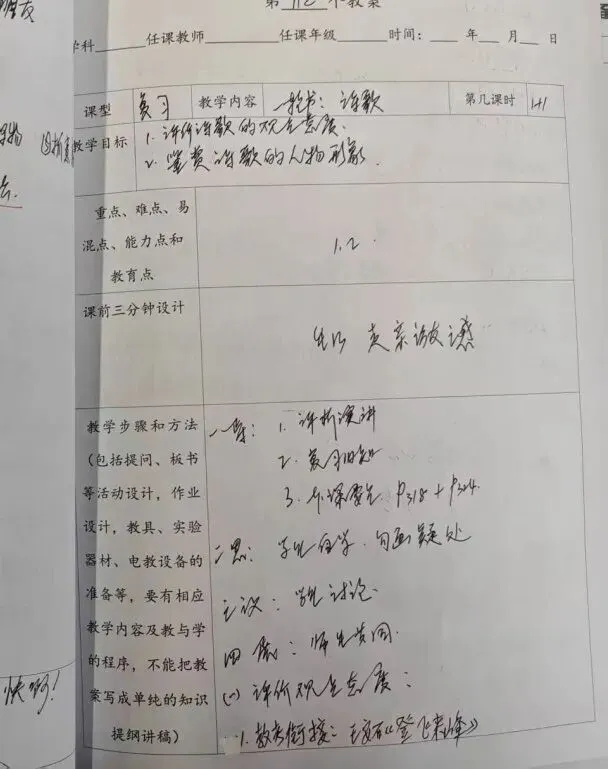 第 112 个教案
学科 任课教师 任课年级 时间： 年 月 日
课型 复习 教学内容 一轮书：诗歌 第几课时 1+1
教学目标 1. 评价诗歌的观点态度.
2. 鉴赏诗歌的人物形象.
重点、难点、易
混点、能力点和
教育点
1, 2.
课前三分钟设计
教学步骤和方法
（包括提问、板书
等活动设计，作业
设计，教具、实验
器材、电教设备的
准备等，要有相应
教学内容及教与学
的程序，不能把教
案写成单纯的知识
提纲讲稿）
1. 评析演讲
2. 复习旧知
3. P318 + P324.
二思：学生自学，勾画疑处
三议：学生讨论.
四展：师生共同.
(一) 评价观点态度：
1. 教考衔接：王安石《登飞来峰》
快啊!